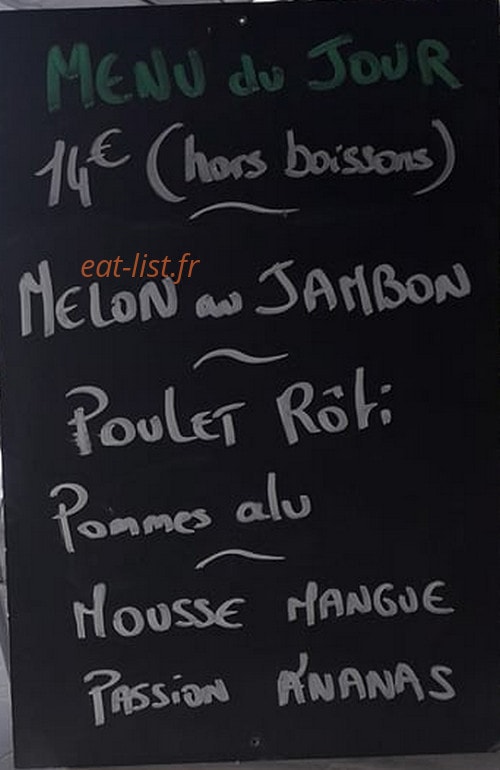 MENU du JOUR
14€ (hors boissons)
eat-list.fr
MELON au JAMBON
POULET RÔti
Pommes alu
MOUSSE MANGUE
PASSION ANANAS